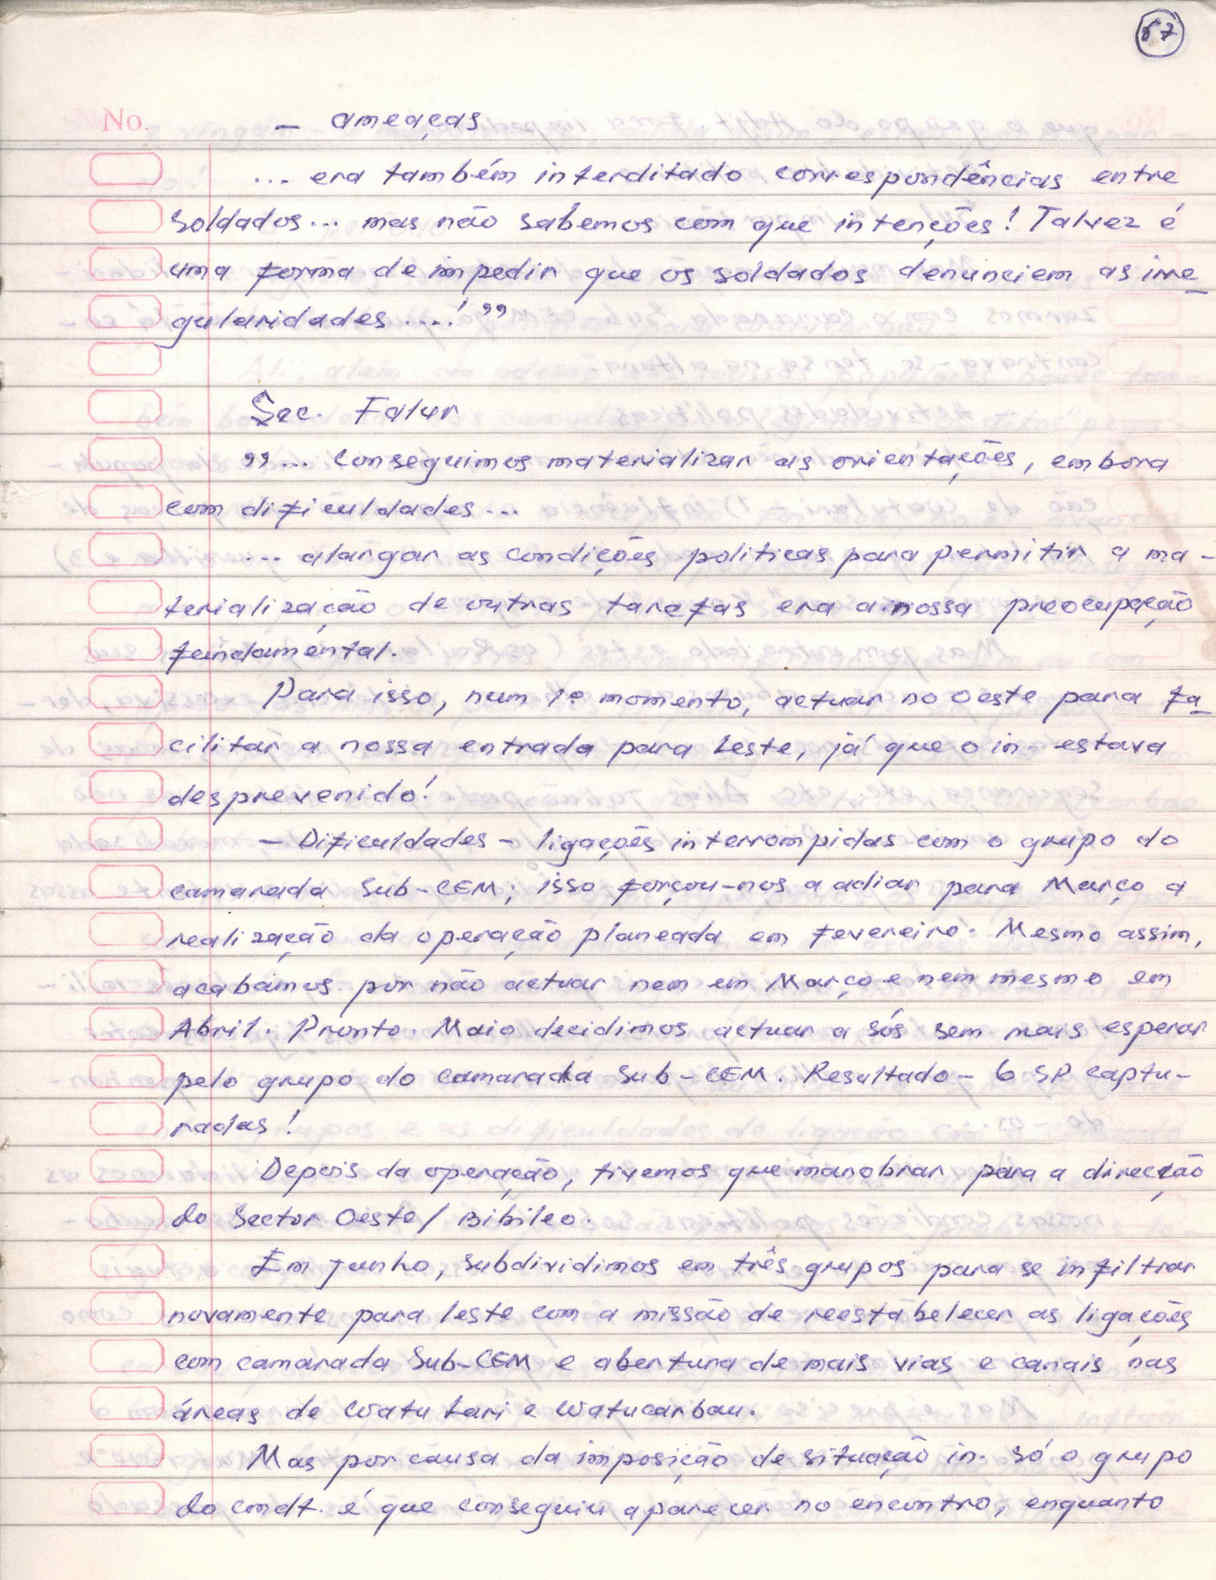 67
No. — ameaças
... era também interditado correspondências entre
soldados... mas não sabemos com que intenções! Talvez é
uma forma de impedir que os soldados denunciem as irre_
gularidades ....! ”
Sec. Falur
” ... conseguimos materializar as orientações, embora
com dificuldades ...
... alargar as condições politicas para permitir a ma-
terialização de outras tarefas era a nossa preocupação
fundamental.
Para isso, num 1º momento, actuar no Oeste para fa_
cilitar a nossa entrada para Leste, já que o in- estava
desprevenido!
— Dificuldades - ligações interrompidas com o grupo do
camarada Sub-CEM; isso forçou-nos a adiar para Março a
realização da operação planeada em fevereiro. Mesmo assim,
acabámos por não actuar nem em Março e nem mesmo em
Abril. Pronto. Maio decidimos actuar a sós sem mais esperar
pelo grupo do camarada Sub-CEM. Resultado - 6 SP captu-
radas!
Depois da operação, tivemos que manobrar para a direcção
do Sector Oeste/Bibileo.
Em Junho, subdividimos em três grupos para se infiltrar
novamente para leste com a missão de reestabelecer as ligações
com camarada Sub-CEM e abertura de mais vias e canais nas
áreas de Watu Lari e Watucarbau.
Mas por causa da imposição de situação in. só o grupo
do cmdt. é que conseguiu aparecer no encontro, enquanto